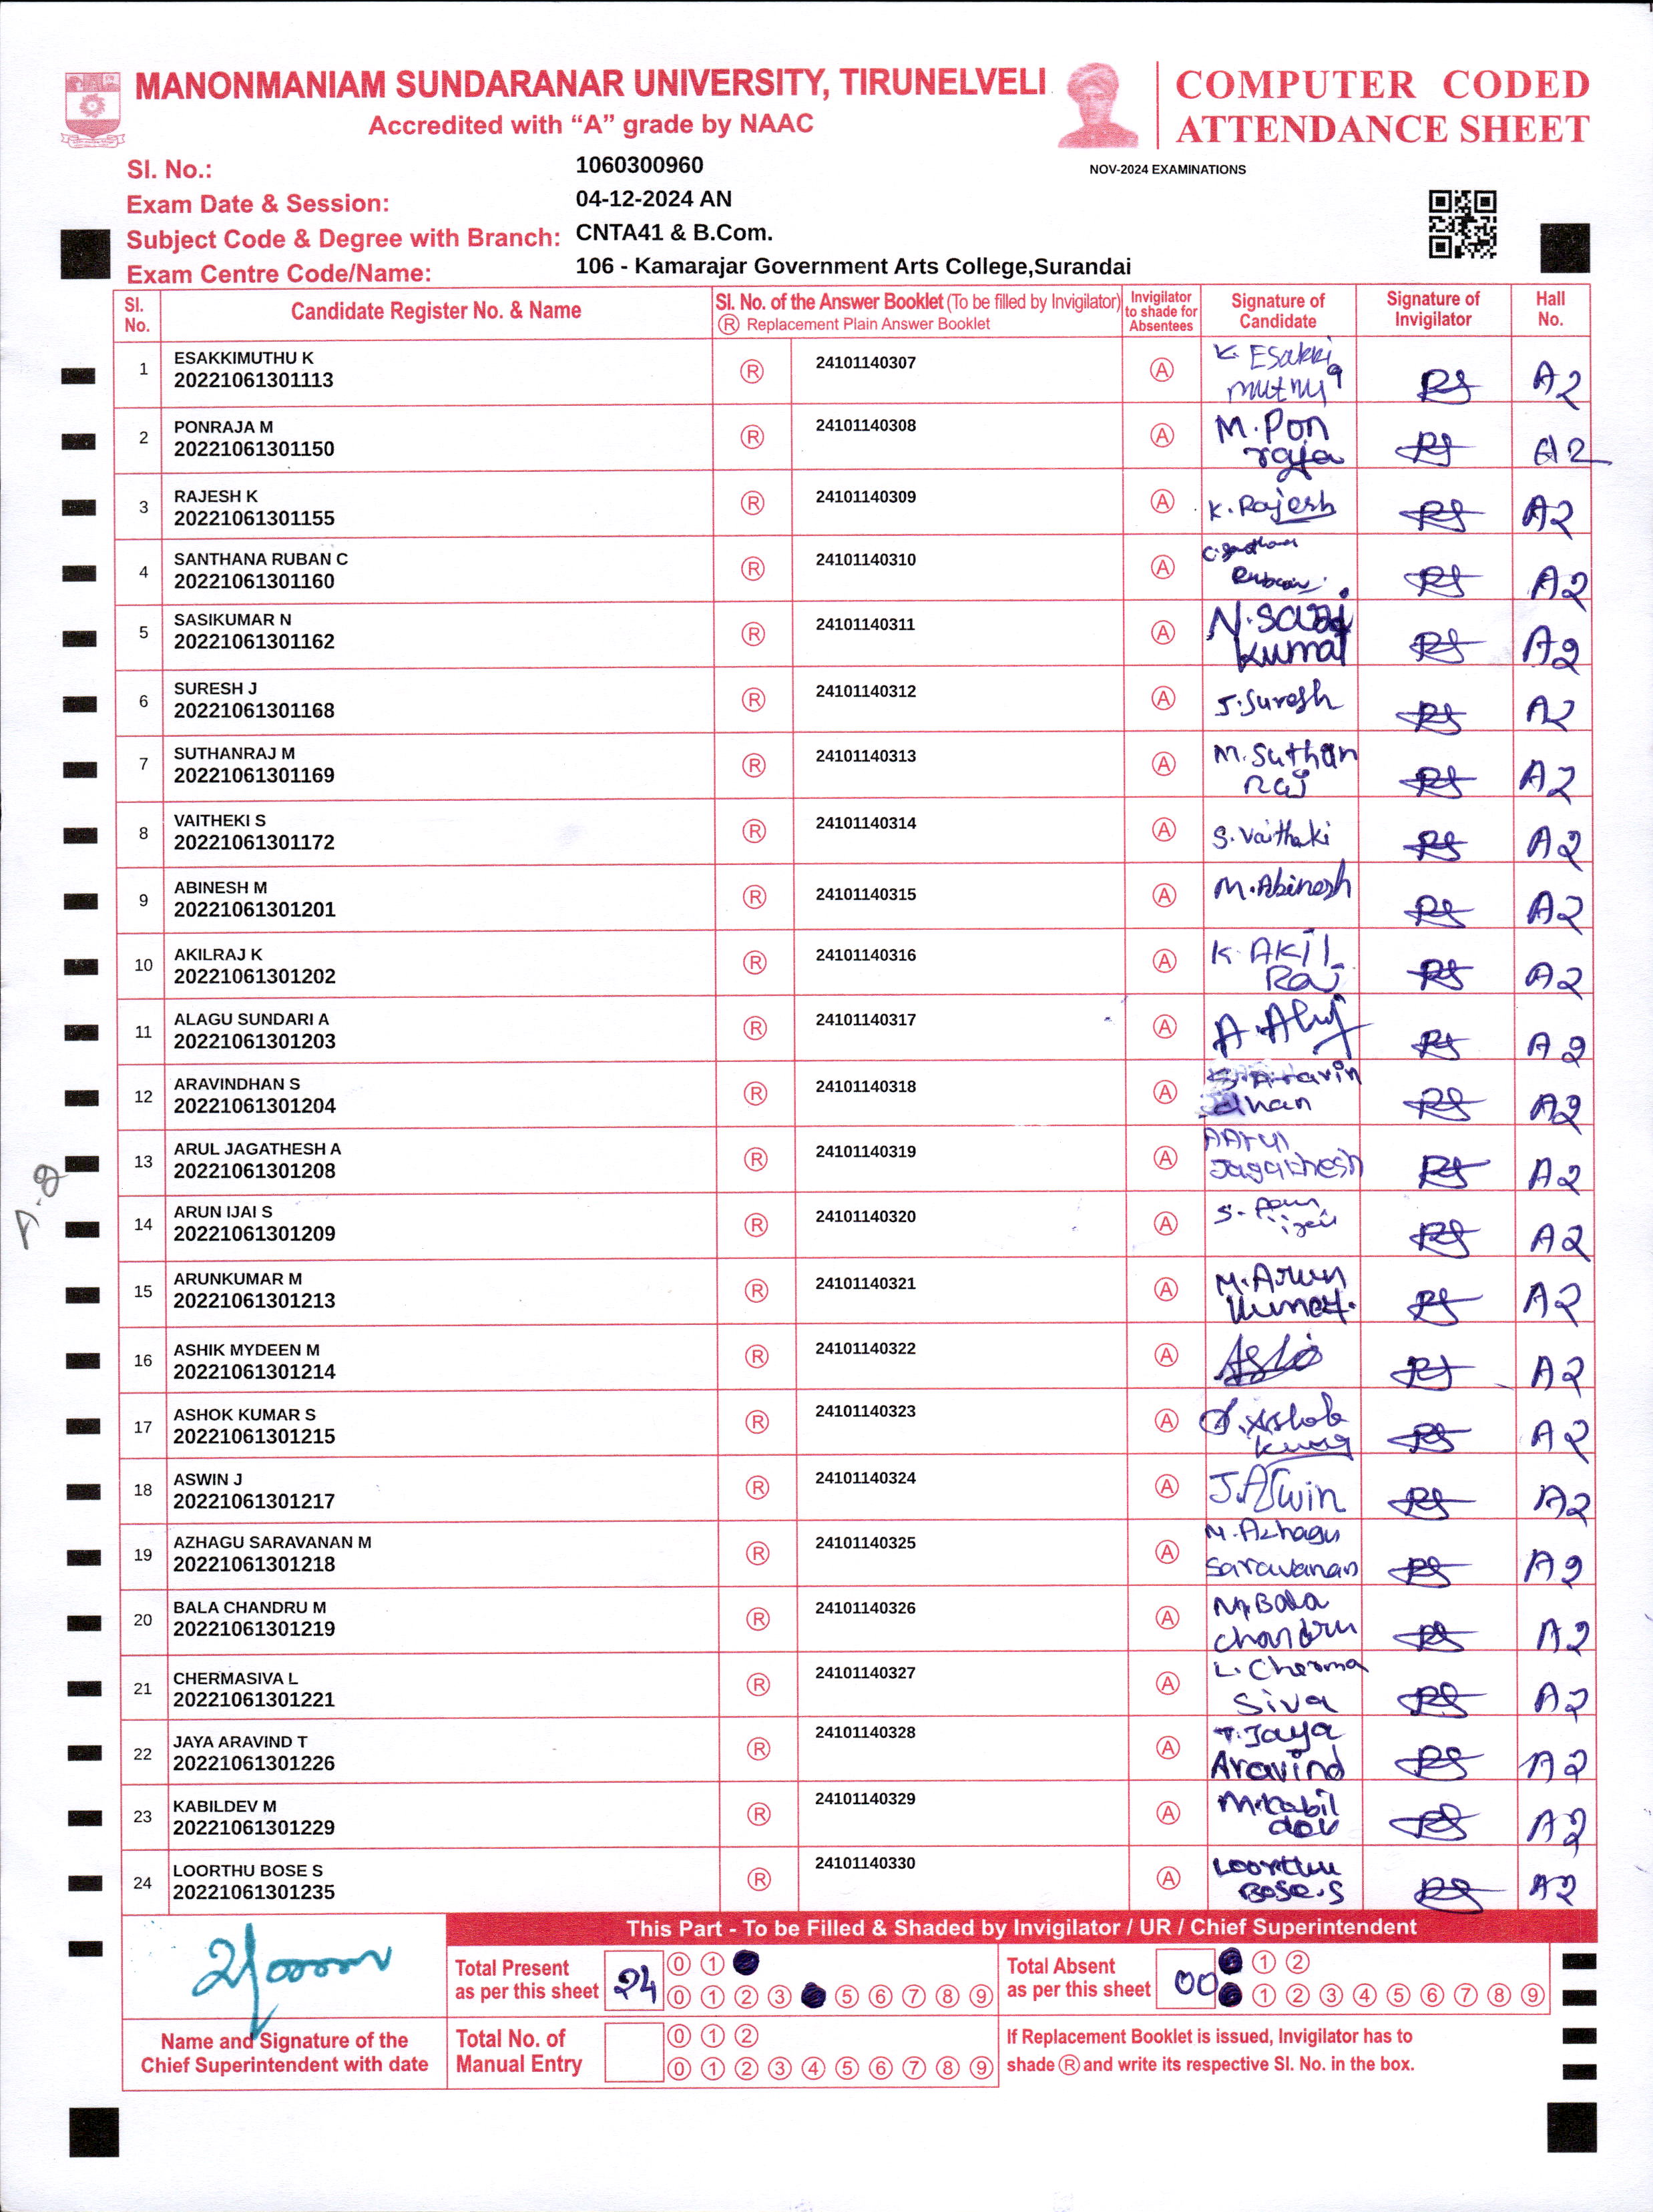 MANONMANIAM SUNDARANAR UNIVERSITY, TIRUNELVELI
Accredited with “A” grade by NAAC
COMPUTER CODED
ATTENDANCE SHEET
NOV-2024 EXAMINATIONS
Sl. No.: 1060300960
Exam Date & Session: 04-12-2024 AN
Subject Code & Degree with Branch: CNTA41 & B.Com.
Exam Centre Code/Name: 106 - Kamarajar Government Arts College,Surandai
Sl. No.
Candidate Register No. & Name
Sl. No. of the Answer Booklet (To be filled by Invigilator)
Ⓡ Replacement Plain Answer Booklet
Invigilator to shade for Absentees
Signature of Candidate
Signature of Invigilator
Hall No.
1 ESAKKIMUTHU K 20221061301113 Ⓡ 24101140307 Ⓐ K. Esakki muthu RS A2
2 PONRAJA M 20221061301150 Ⓡ 24101140308 Ⓐ M.Pon raja RS A2
3 RAJESH K 20221061301155 Ⓡ 24101140309 Ⓐ K.Rajesh RS A2
4 SANTHANA RUBAN C 20221061301160 Ⓡ 24101140310 Ⓐ C.Santhana Ruban RS A2
5 SASIKUMAR N 20221061301162 Ⓡ 24101140311 Ⓐ N.Sasi kumar RS A2
6 SURESH J 20221061301168 Ⓡ 24101140312 Ⓐ J.Suresh RS A2
7 SUTHANRAJ M 20221061301169 Ⓡ 24101140313 Ⓐ M.Suthan Raj RS A2
8 VAITHEKI S 20221061301172 Ⓡ 24101140314 Ⓐ S.Vaitheki RS A2
9 ABINESH M 20221061301201 Ⓡ 24101140315 Ⓐ M.Abinesh RS A2
10 AKILRAJ K 20221061301202 Ⓡ 24101140316 Ⓐ K.AKIL Raj RS A2
11 ALAGU SUNDARI A 20221061301203 Ⓡ 24101140317 Ⓐ RS A2
12 ARAVINDHAN S 20221061301204 Ⓡ 24101140318 Ⓐ S.Aravin dhan RS A2
13 ARUL JAGATHESH A 20221061301208 Ⓡ 24101140319 Ⓐ A Arul Jagathesh RS A2
14 ARUN IJAI S 20221061301209 Ⓡ 24101140320 Ⓐ S. Arun ijai RS A2
15 ARUNKUMAR M 20221061301213 Ⓡ 24101140321 Ⓐ M.Arun kumar. RS A2
16 ASHIK MYDEEN M 20221061301214 Ⓡ 24101140322 Ⓐ RS A2
17 ASHOK KUMAR S 20221061301215 Ⓡ 24101140323 Ⓐ S.Ashok Kumar RS A2
18 ASWIN J 20221061301217 Ⓡ 24101140324 Ⓐ J.Aswin RS A2
19 AZHAGU SARAVANAN M 20221061301218 Ⓡ 24101140325 Ⓐ M.Azhagu Saravanan RS A2
20 BALA CHANDRU M 20221061301219 Ⓡ 24101140326 Ⓐ M.Bala chandru RS A2
21 CHERMASIVA L 20221061301221 Ⓡ 24101140327 Ⓐ L.Cherma Siva RS A2
22 JAYA ARAVIND T 20221061301226 Ⓡ 24101140328 Ⓐ T.Jaya Aravind RS A2
23 KABILDEV M 20221061301229 Ⓡ 24101140329 Ⓐ M.Kabil dev RS A2
24 LOORTHU BOSE S 20221061301235 Ⓡ 24101140330 Ⓐ Loorthu Bose.S RS A2
A.2
This Part - To be Filled & Shaded by Invigilator / UR / Chief Superintendent
Total Present as per this sheet 24
0 1
0 1 2 3 5 6 7 8 9
Total Absent as per this sheet 00
1 2
1 2 3 4 5 6 7 8 9
Name and Signature of the
Chief Superintendent with date
Total No. of Manual Entry
0 1 2
0 1 2 3 4 5 6 7 8 9
If Replacement Booklet is issued, Invigilator has to
shade Ⓡ and write its respective Sl. No. in the box.